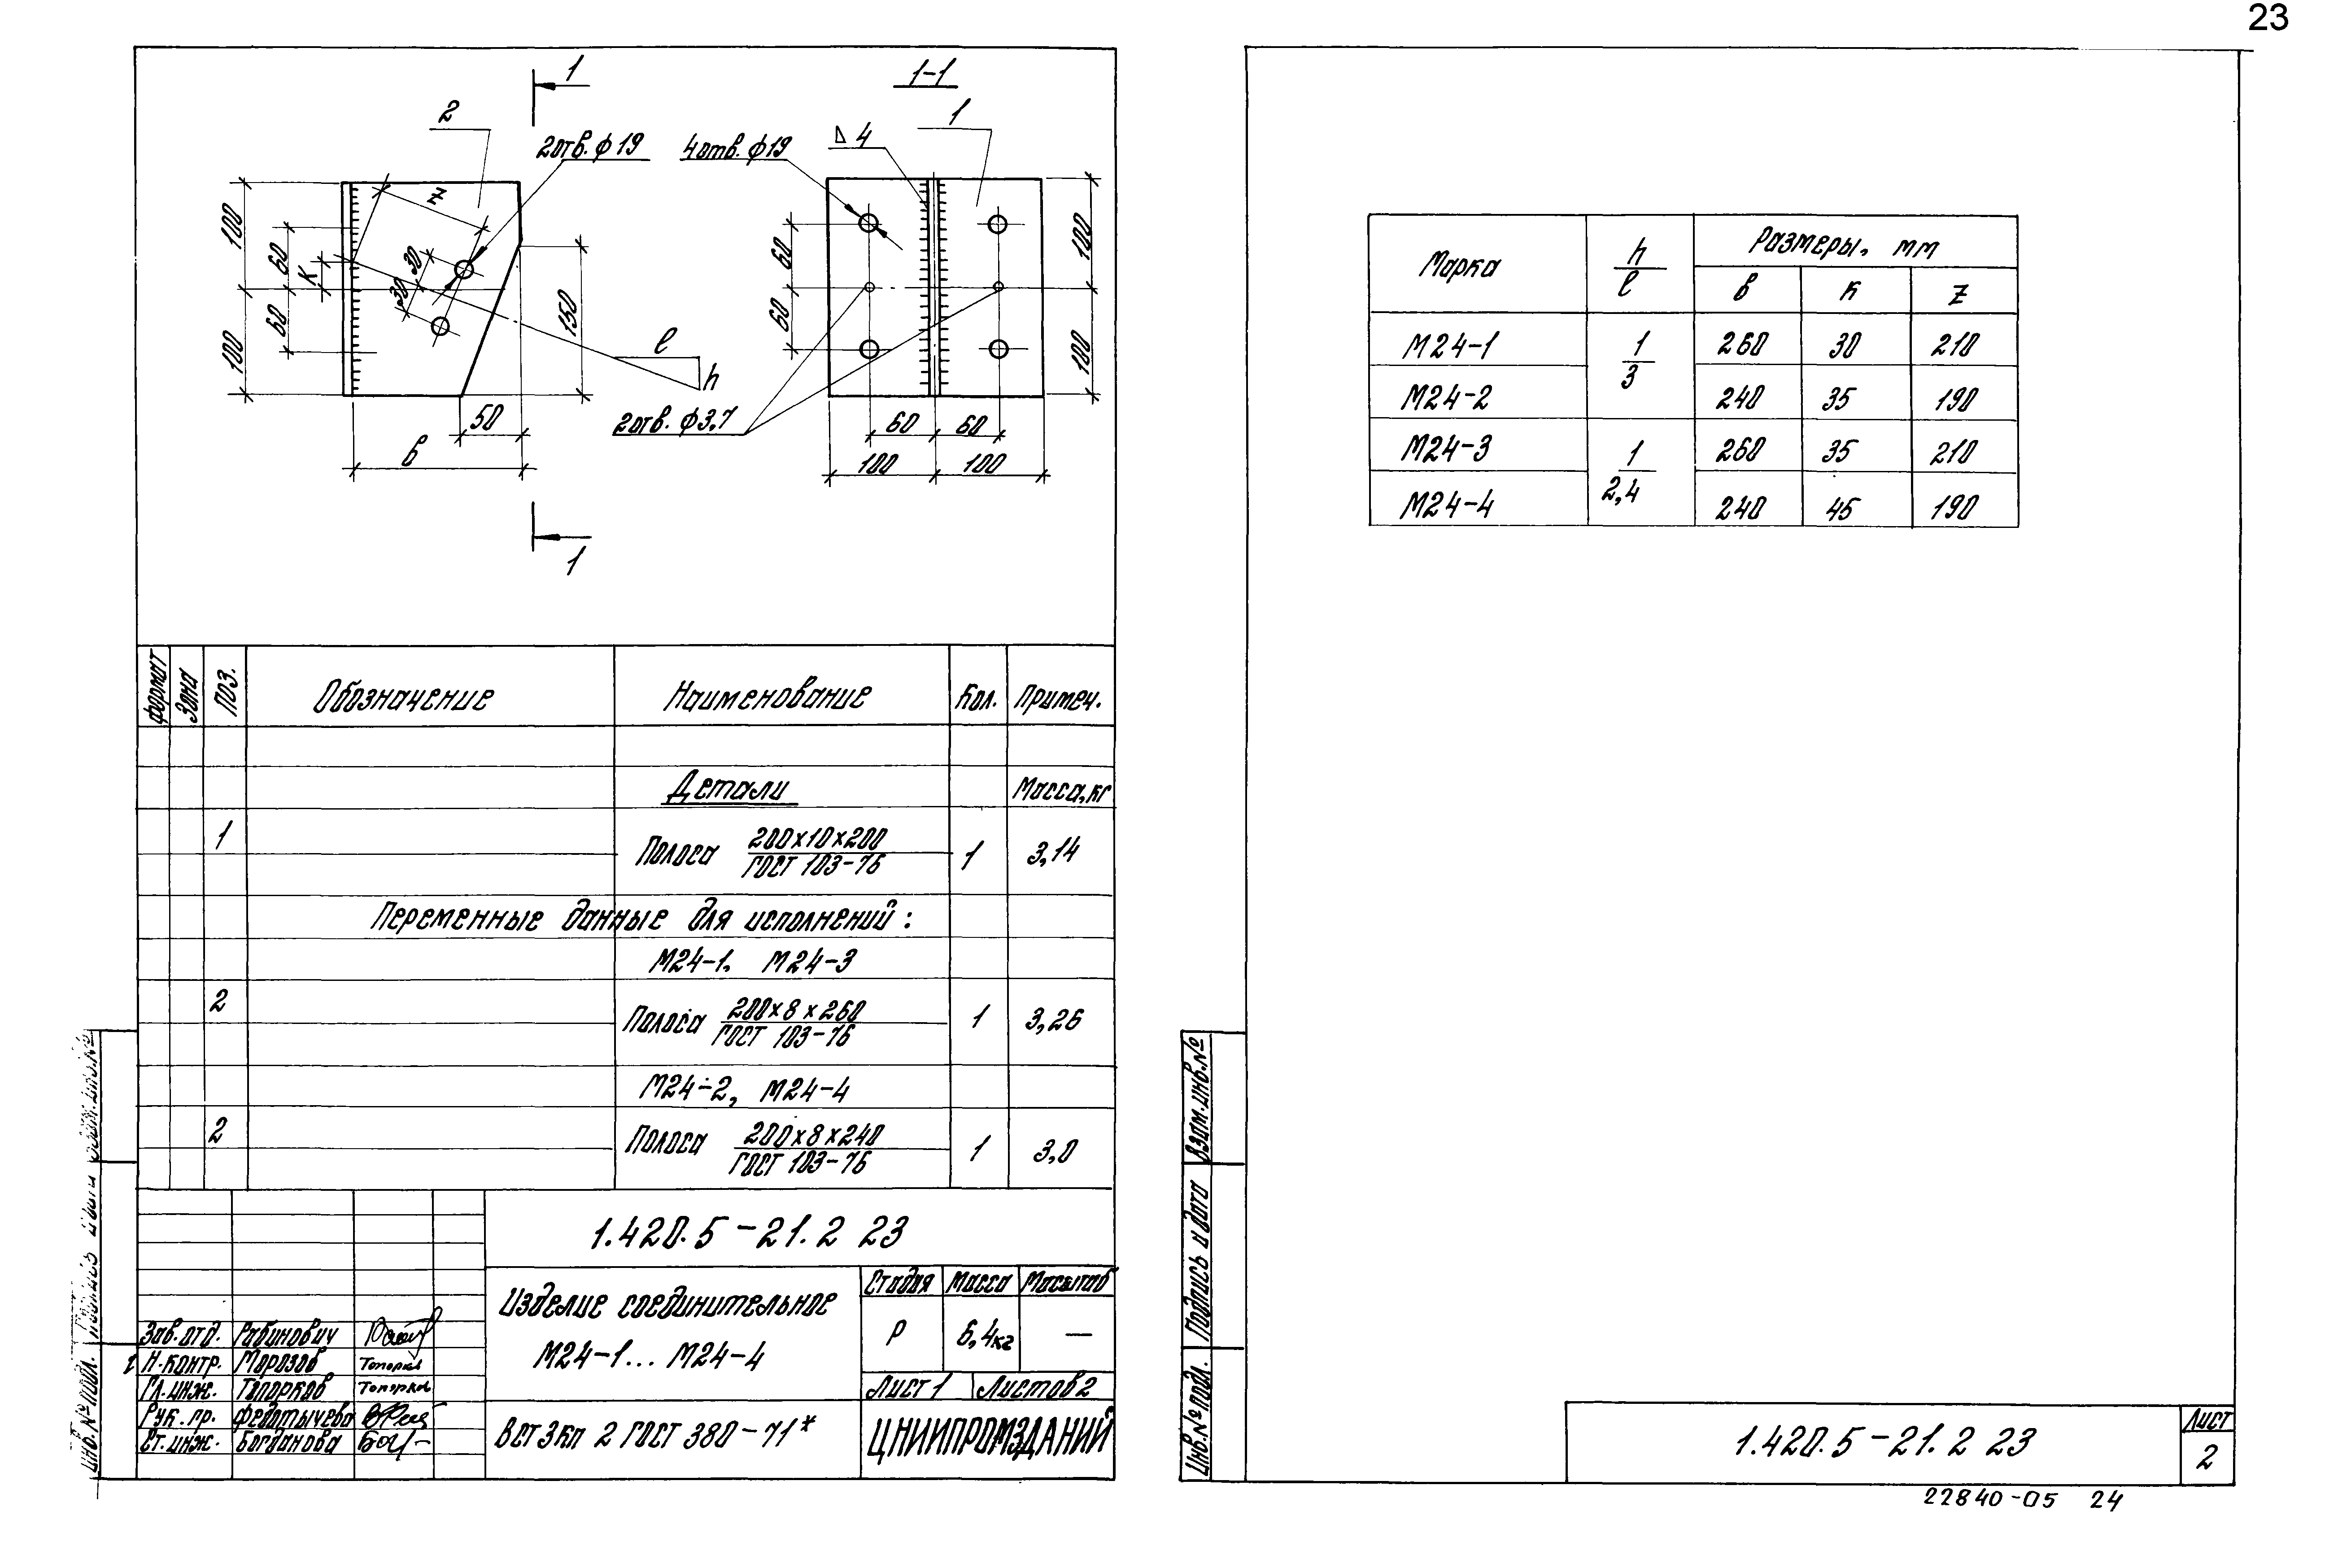 23
1
1-1
2
1
2отв. ф19
4отв. ф19
Δ 4
z
100
60
К
30
30
60
100
150
l
h
50
в
60
60
100
100
2отв. ф3,7
60
60
100
100
1
Формат
Зона
Поз.
Обозначение
Наименование
Кол.
Примеч.
Детали
Масса, кг
1
Полоса 200х10х200
ГОСТ 103-76
1
3,14
Переменные данные для исполнений:
М24-1, М24-3
2
Полоса 200х8х260
ГОСТ 103-76
1
3,26
М24-2, М24-4
2
Полоса 200х8х240
ГОСТ 103-76
1
3,0
1.420.5-21.2 23
Изделие соединительное
М24-1... М24-4
Стадия Масса Масштаб
Р 6,4кг —
Лист 1 Листов 2
ВСт3кп 2 ГОСТ 380-71*
ЦНИИПРОМЗДАНИЙ
Зав. отд. Рабинович
Н. контр. Морозов Топорков
Гл. инж. Топорков Топорков
Рук. пр. Федотычева
Ст. инж. Богданова
Инв. № подл.
Марка h/l Размеры, мм
в К z
М24-1 1/3 260 30 210
М24-2 240 35 190
М24-3 1/2,4 260 35 210
М24-4 240 45 190
Взам. инв. №
Подпись и дата
Инв. № подл.
1.420.5-21.2 23
Лист
2
22840-05 24